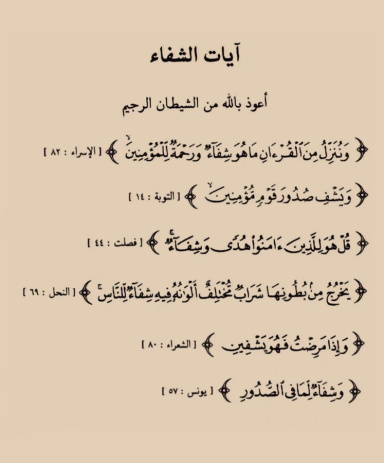 آيات الشفاء
أعوذ بالله من الشيطان الرجيم
﴿ وَنُنَزِّلُ مِنَ ٱلْقُرْءَانِ مَا هُوَ شِفَآءٌ وَرَحْمَةٌ لِّلْمُؤْمِنِينَ ﴾ [ الإسراء : ٨٢ ]
﴿ وَيَشْفِ صُدُورَ قَوْمٍ مُّؤْمِنِينَ ﴾ [ التوبة : ١٤ ]
﴿ قُلْ هُوَ لِلَّذِينَ ءَامَنُوا۟ هُدًى وَشِفَآءٌ ﴾ [ فصلت : ٤٤ ]
﴿ يَخْرُجُ مِنۢ بُطُونِهَا شَرَابٌ مُّخْتَلِفٌ أَلْوَٰنُهُۥ فِيهِ شِفَآءٌ لِّلنَّاسِ ﴾ [ النحل : ٦٩ ]
﴿ وَإِذَا مَرِضْتُ فَهُوَ يَشْفِينِ ﴾ [ الشعراء : ٨٠ ]
﴿ وَشِفَآءٌ لِّمَا فِى ٱلصُّدُورِ ﴾ [ يونس : ٥٧ ]